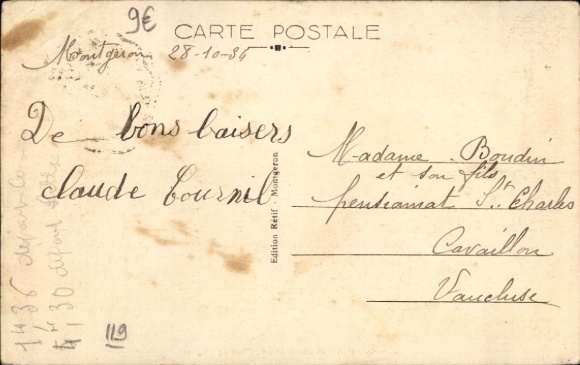 9€
CARTE POSTALE
Montgeron 28-10-35
De bons baisers
Claude Tournil
Madame Boudin
et son fils
pensionnat St Charles
Cavaillon
Vaucluse
Edition Rétif - Montgeron
119